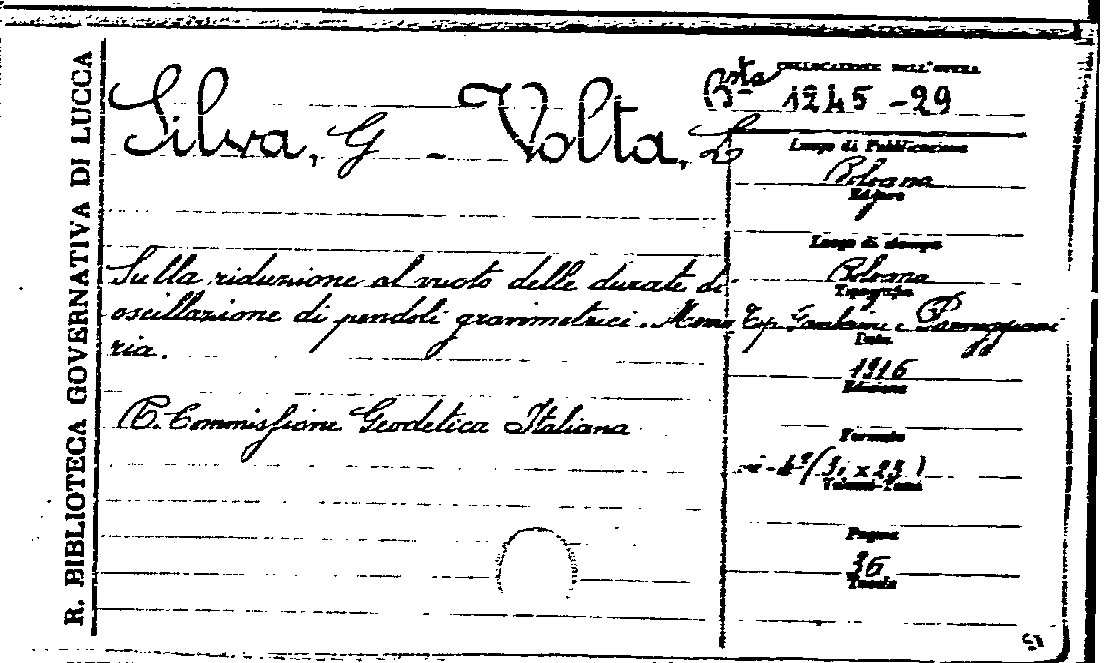 R. BIBLIOTECA GOVERNATIVA DI LUCCA
Silva, G - Volta, L
Sulla riduzione al vuoto delle durate di
oscillazione di pendoli gravimetrici. Memo
ria.
R. Commissione Geodetica Italiana
Bsta
COLLOCAZIONE DELL'OPERA
1245 - 29
Luogo di Pubblicazione
Bologna
Editore
Luogo di stampa
Bologna
Tipografia
Tip. Gamberini e Parmeggiani
Data
1916
Edizione
Formato
in-4º (31 x 23)
Volumi-Tomi
Pagine
36
Tavole